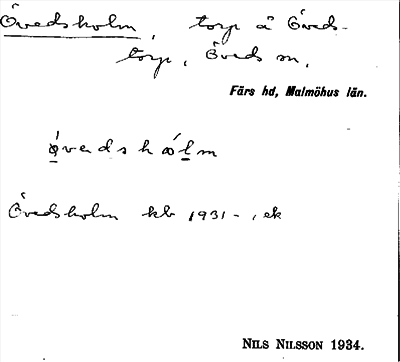 Övedsholm, torp å Öveds-
torp, Öveds sn,
Färs hd, Malmöhus län.
øvedshólm
Övedsholm kb 1931-, ek
NILS NILSSON 1934.